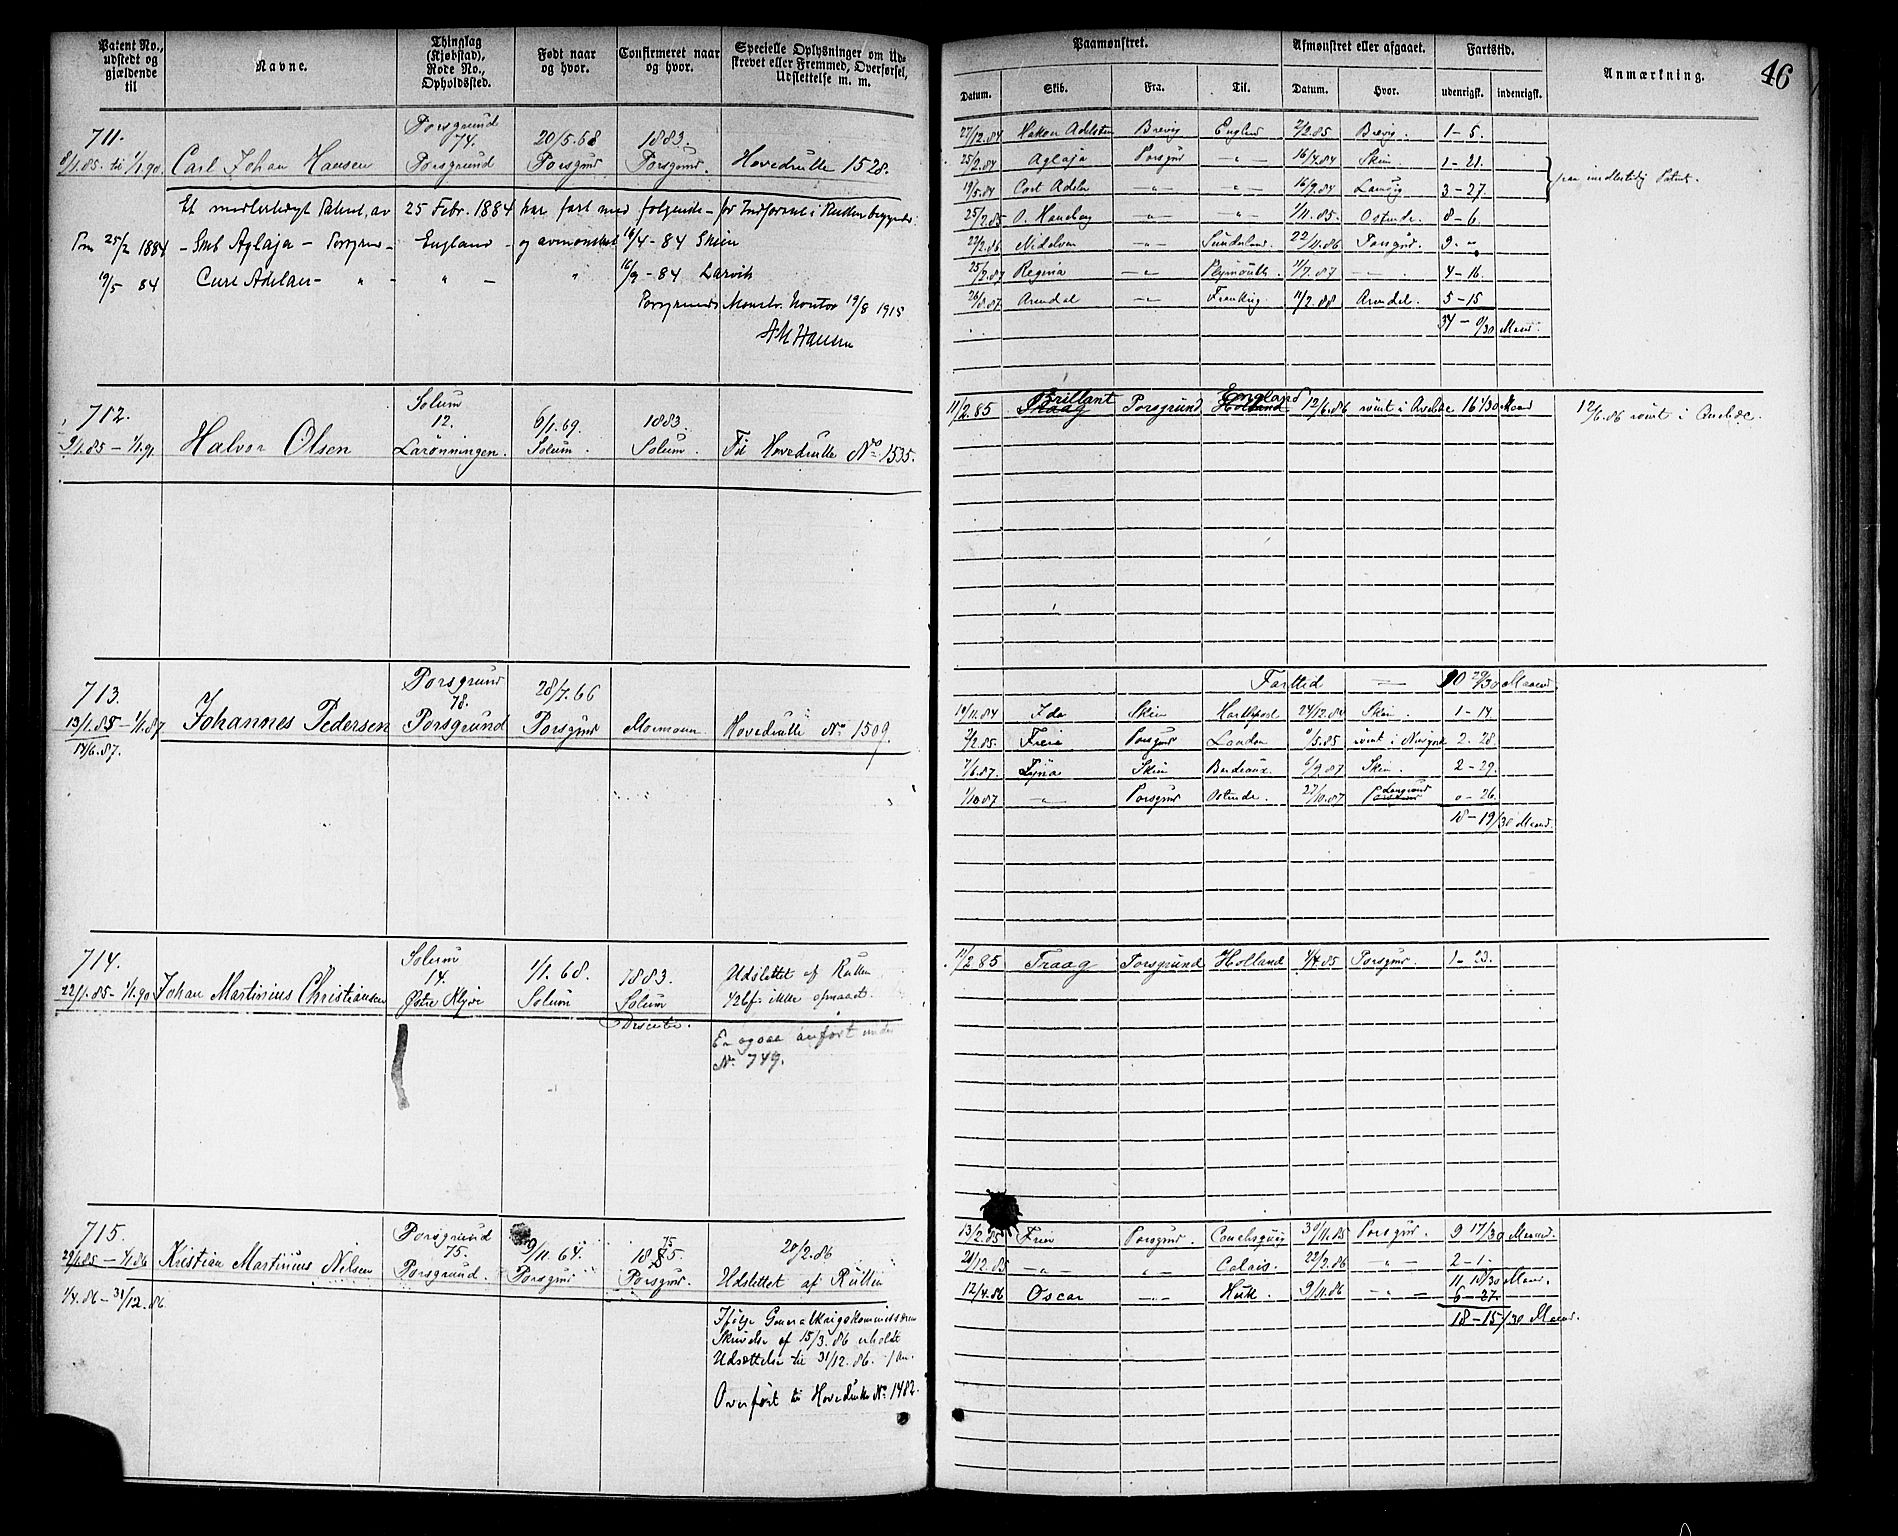 Patent No., udstedt og gjældende til
Navne.
Thinglag (Kjøbstad), Rode No., Opholdssted.
Født naar og hvor.
Confirmeret naar og hvor.
Specielle Oplysninger om Udskrevet eller Fremmed, Overførsel, Udslettelse m. m.
Paamønstret.
Afmønstret eller afgaaet.
Fartstid.
Anmærkning.
46
Datum.
Skib.
Fra.
Til.
Datum.
Hvor.
udenrigst.
indenrigst.
711.
Porsgrund 74.
20/5.68
1883.
8/1.85. til 1/1.90. Carl Johan Hansen Porsgrund Porsgrund Porsgrund. Hovedrulle 1528.
Et midlertidigt Patent, av 25 Febr. 1884 har fart med følgende
Pm 25/2 1884 – Smb Aglaja – Porsgrund – England – og avmønstret 16/4 – 84 Skien
19/5 84 Curt Adelaer – " – " – " 16/9 – 84 Larvik
Porsgrunds Mønstr. Kontor 19/8 1915
A M Hansen
27/12.84 Hakon Adelsten Brevig England 7/2.85 Brevig. 1 – 5.
25/2.84 Aglaja Porsgrund – " – 16/4.84 Skien. 1 – 21.
19/5.84 Cort Adeler – " – – " – 16/9.84 Laurvig 3 – 27.
paa midlertidig Patent.
25/2.85 – " – – " – 1/11.85. Ostende. 8 – 6
22/2.86 Nidelven – " – Sunderland. 22/11.86 Porsgrund. 9 – "
25/2.87 Regina – " – Plymouth. 11/7.87 – " – 4 – 16.
26/8.87 Arendal – " – 11/2.88 Arendal. 5 – 15
34 – 0/30 Maand.
712.
Solum 12.
6/1.69.
1883.
9/1.85 – 1/1.91 Halvor Olsen Larønningen. Solum. Solum. Til Hovedrulle No 1535.
Brillant England
11/2.85 Traag Porsgrund Holland 12/6.86 rømt i Quebec 16 1/30 Maand
12/6.86 rømt i Quebec
713.
Porsgrund 78.
28/7.66
13/1.85 – 1/1.87 Johannes Pedersen Porsgrund Porsgrund Mormon Hovedrulle No 1509.
14/6.87.
Farttid – 10 20/30 Maaned
19/11.84 Ida Skien Hartlepool 24/12.84 Skien. 1 – 14.
3/2.85. Freia Porsgrund London 1/5.85 rømt i Newyork 2 – 28.
7/6.87. Tyna Skien Bordeaux. 6/9.87 Skien. 2 – 29.
1/10.87 – " – Porsgrund Ostende. 27/10.87 Langesund 0 – 26.
18 – 19/30 Maand.
714.
Solum 14.
1/1. 68.
1883.
22/1.85 – 1/1.90 Johan Martinius Christiansen Østre Klyve Solum Solum Dissenter.
Udslettet af Rullen
42 bf. ikke opnaaet.
Er ogsaa anført under
No 749.
11/2.85 Traag Porsgrund Holland 4/4.85 Porsgrund. 1 – 23.
715.
Porsgrund 75.
9/11.64.
1885. 75
20/2.86
29/1.85 – 1/1.86 Kristian Martinius Nilsen Porsgrund. Porsgrund Porsgrund. Udslettet af Rullen
1/4.86 – 31/12.86
Ifølge Generalkrigskommissæren
Skrivelse af 15/3.86 erholdt
Udsættelse til 31/12.86.
Overført til Hovedrulle No 1482.
13/2.85 Freia Porsgrund. 30/11.85 Porsgrund. 9 17/30 Maand.
21/12.85 – " – – " – Calais. 22/2.86 – " – 2 – 1.
11. 18/30 Maand.
12/4.86 Oscar – " – Hull. 9/11.86 – " – 6 – 27.
18 – 15/30 Maand.